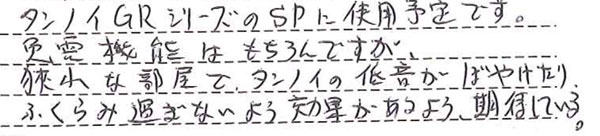 タンノイGRシリーズのSPに使用予定です。
免震機能はもちろんですが、
狭小な部屋で、タンノイの低音がぼやけたり、
ふくらみ過ぎないよう効果があるよう、期待している。